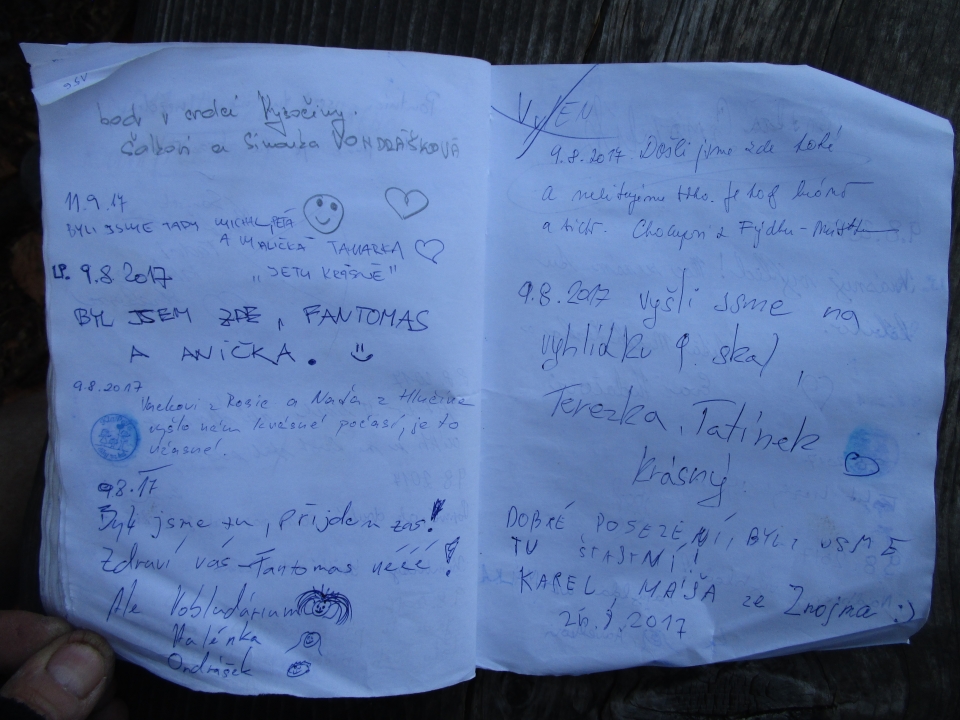 bod v srdci Vysočiny.
a Simonka VONDRÁŠKOVÁ
11.9.17
BYLI JSME TADY MICHAL, PÉŤA
A MALIČKÁ TAMARKA
"JE TU KRÁSNĚ"
9.8.2017
BYL JSEM ZDE, FANTOMAS
A ANIČKA.
9.8.2017
Vackovi z Rosic a Naďa z Hlučína
vyšlo nám krásné počasí, je to
úžasné!
9.8.17
Byli jsme tu, přijdem zas!
Zdraví vás Fantomas nééé!
Ale Vobludárium
Valénka
Ondrášek
9.8.2017 Došli jsme zde
a nelitujeme toho. Je
a ticho. z Frýdku-Místku
9.8.2017 vyšli jsme na
vyhlídku 9 skal
Terezka, Tatínek
krásný
DOBRÉ POSEZENÍ, BYLI JSME
TU ŠŤASTNÍ!
KAREL MÁŠA ze Znojma :)
2017